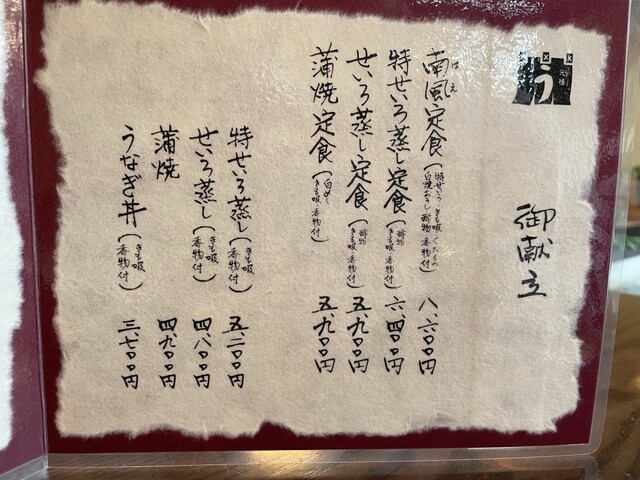 う
元祖
御献立
南風定食(特せいろ・きも吸・くだもの 白焼おろし 酢物 香物付) 八、六〇〇円
はえ
特せいろ蒸し定食(酢物 きも吸 香物付) 六、四〇〇円
せいろ蒸し定食(酢物 きも吸 香物付) 五、九〇〇円
蒲焼定食(白めし きも吸 香物付) 五、九〇〇円
特せいろ蒸し(きも吸 香物付) 五、二〇〇円
せいろ蒸し(きも吸 香物付) 四、八〇〇円
蒲焼 四、九〇〇円
うなぎ丼(きも吸 香物付) 三、七〇〇円